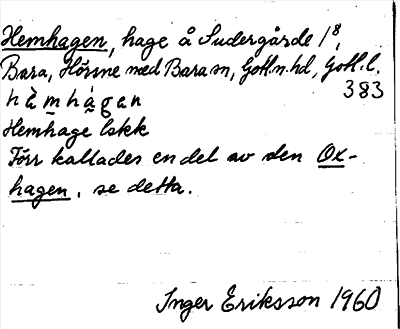 Hemhagen, hage å Sudergårde 1⁸,
Bara, Hörsne med Bara sn, Gotl.n.hd, Gotl.l.
383
hà̀m̲hág̲an
Hemhage lskk
Förr kallades en del av den Ox-
hagen, se detta.
Inger Eriksson 1960